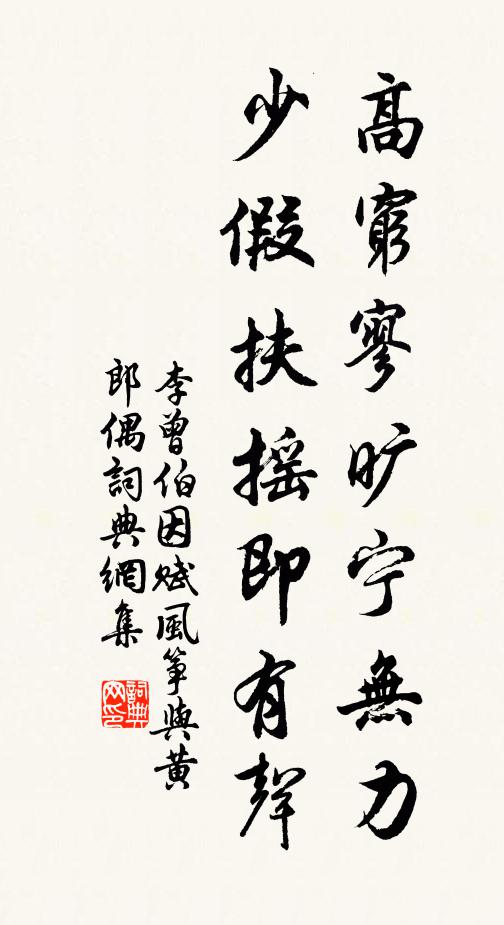 高窮寥旷宁無力
少假扶摇即有聲
李曾伯因赋風筝與黄
郎偶詞典網集
詞典
网印